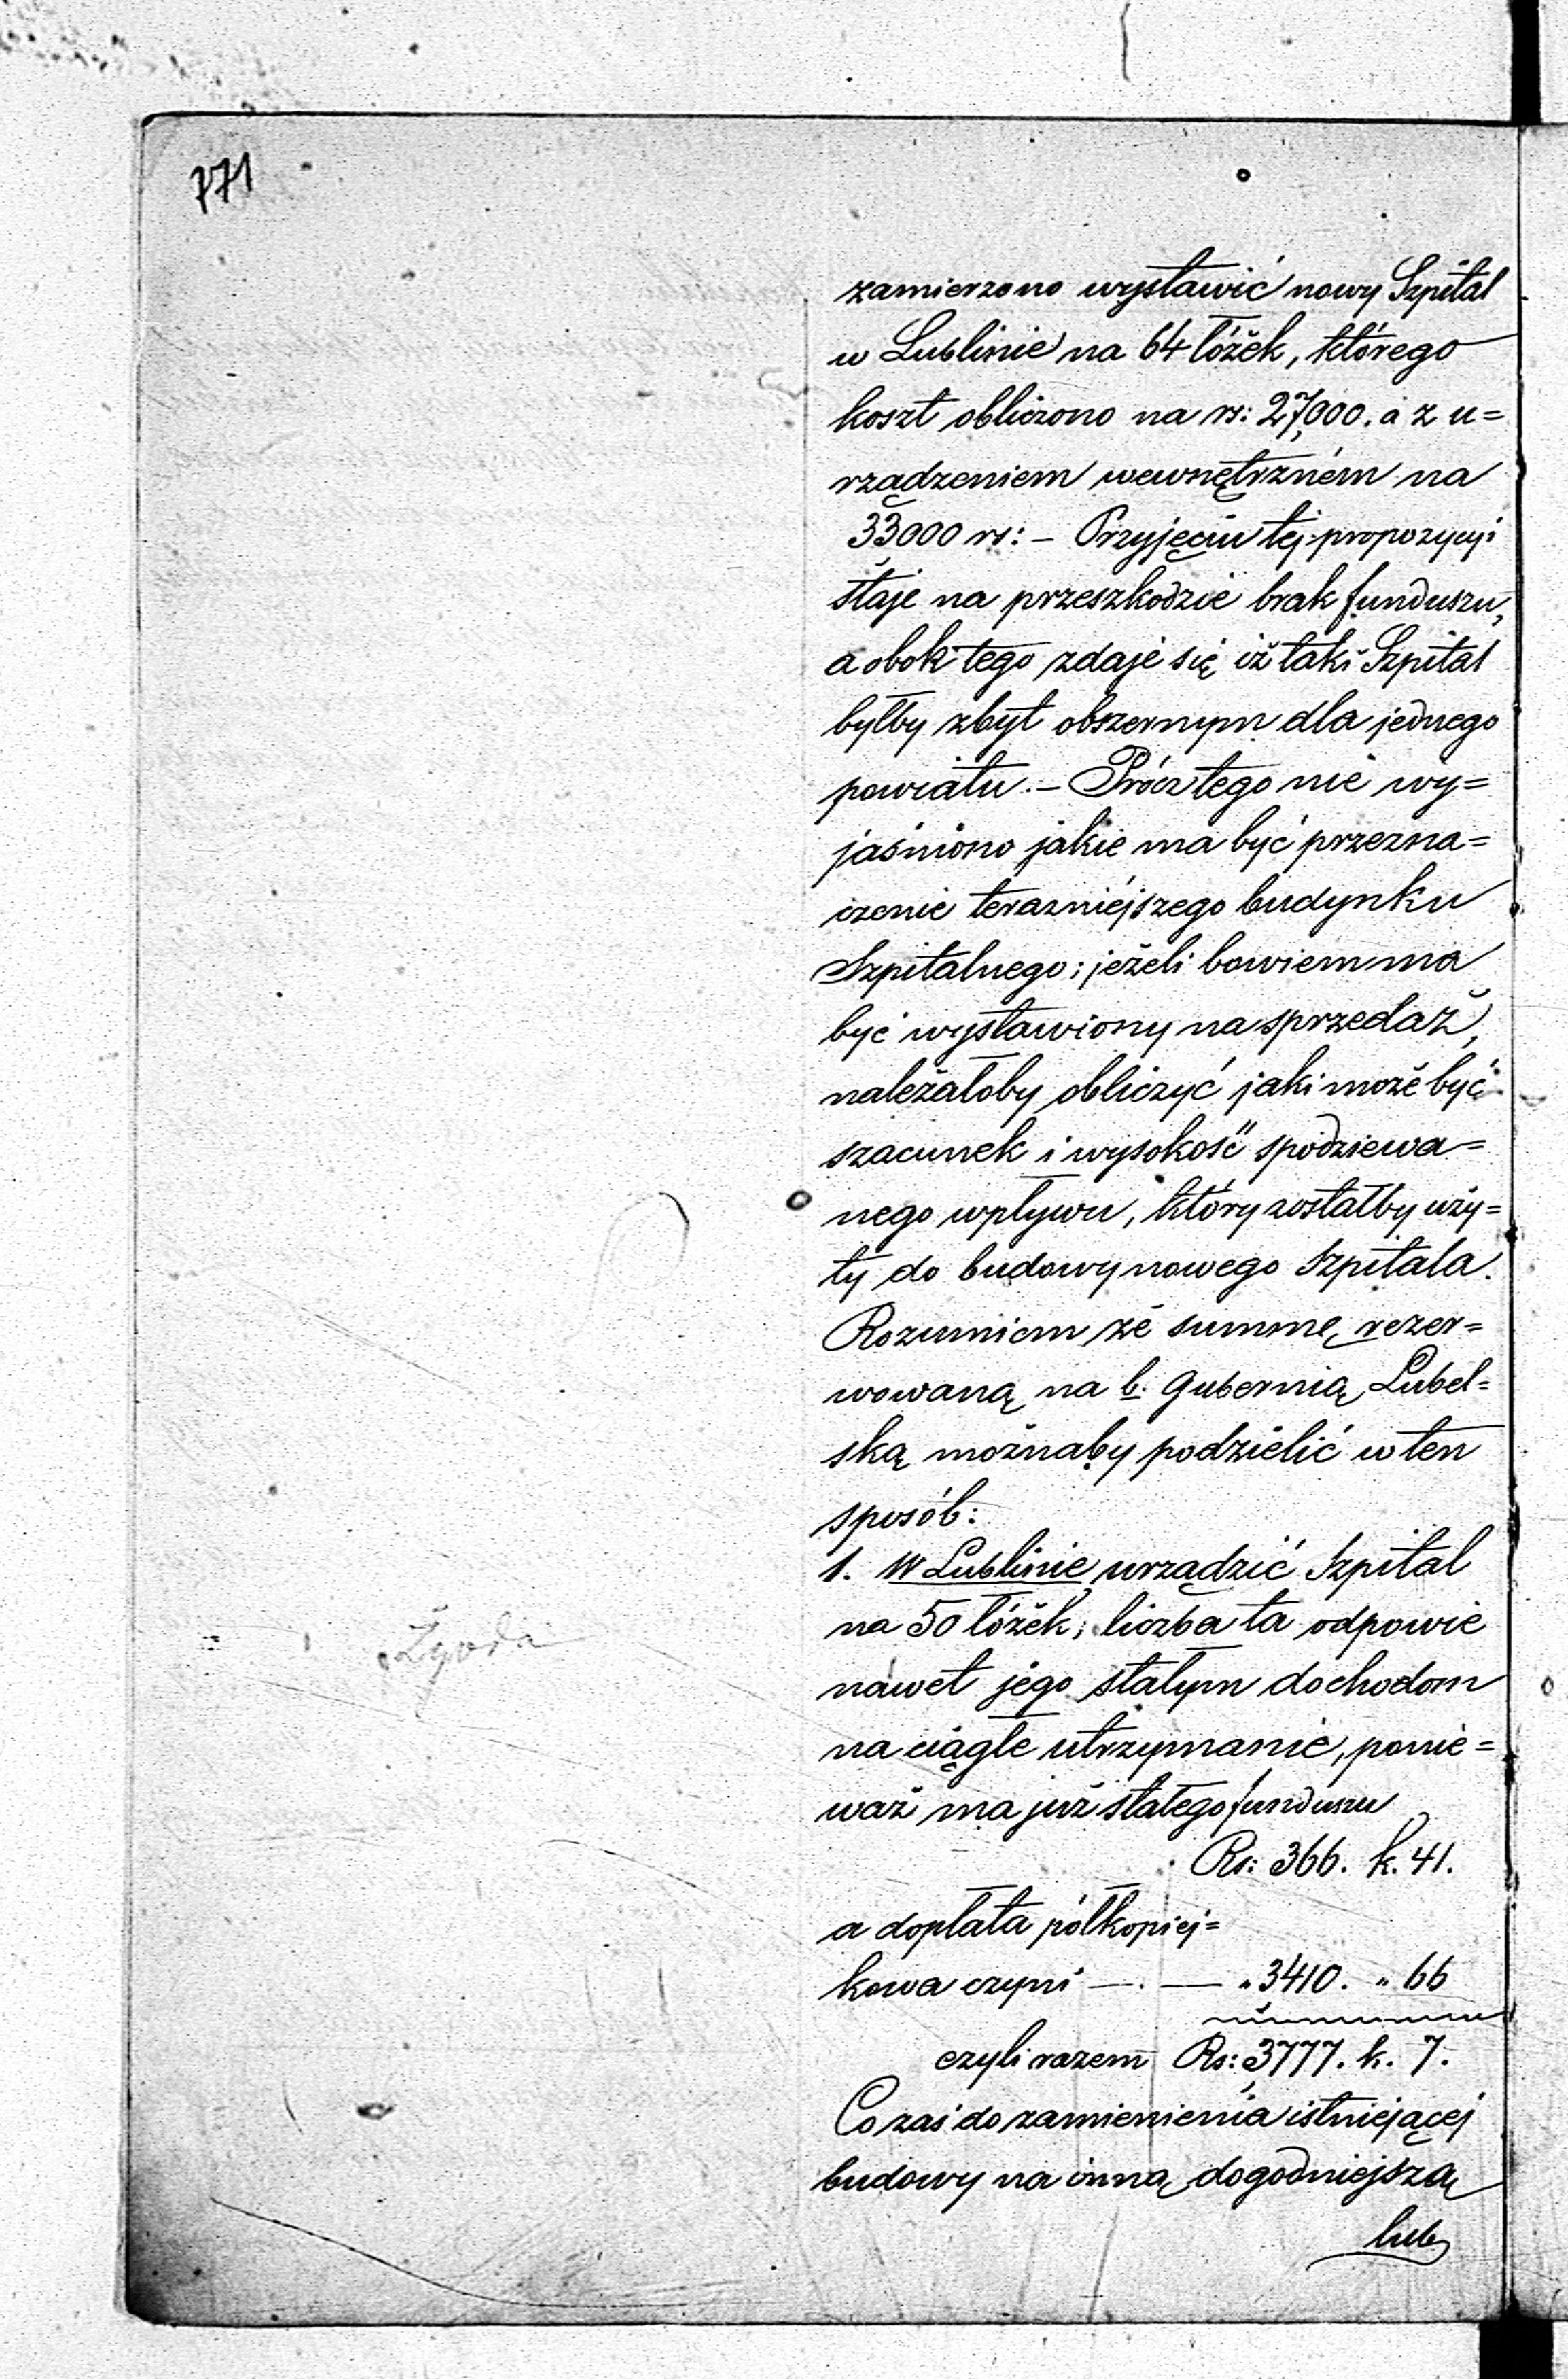 771
zamierzono wystawić nowy Szpital
w Lublinie na 64 łóżek, którego
koszt obliczono na rs: 27,000. a z u=
rządzeniem wewnętrzném na
33,000 rs: – Przyjęciu téj propozycyi
staje na przeszkodzie brak funduszu,
a obok tego zdaje się iż taki Szpital
byłby zbyt obszernym dla jednego
powiatu. – Prócz tego nie wy=
jaśniono jakie ma być przezna=
czenie teraźniejszego budynku
Szpitalnego; jeżeli bowiem ma
być wystawiony na sprzedaż,
należałoby obliczyć jaki może być
szacunek i wysokość spodziewa=
nego wpływu, który zostałby uży=
ty do budowy nowego Szpitala.
Rozumiem że summę rezer=
wowaną na b. Gubernią Lubel=
ską możnaby podzielić w ten
sposób:
1. W Lublinie urządzić Szpital
na 50 łóżek; liczba ta odpowie
nawet jego stałym dochodom
na ciągłe utrzymanie, ponie=
waż ma już stałego funduszu
Rs: 366. k. 41.
a dopłata półkopiej=
kowa czyni — . — „ 3410. „ 66
czyli razem Rs: 3,777. k. 7.
Co zaś do zamienienia istniejącej
budowy na inną dogodniejszą
lub
Zgoda